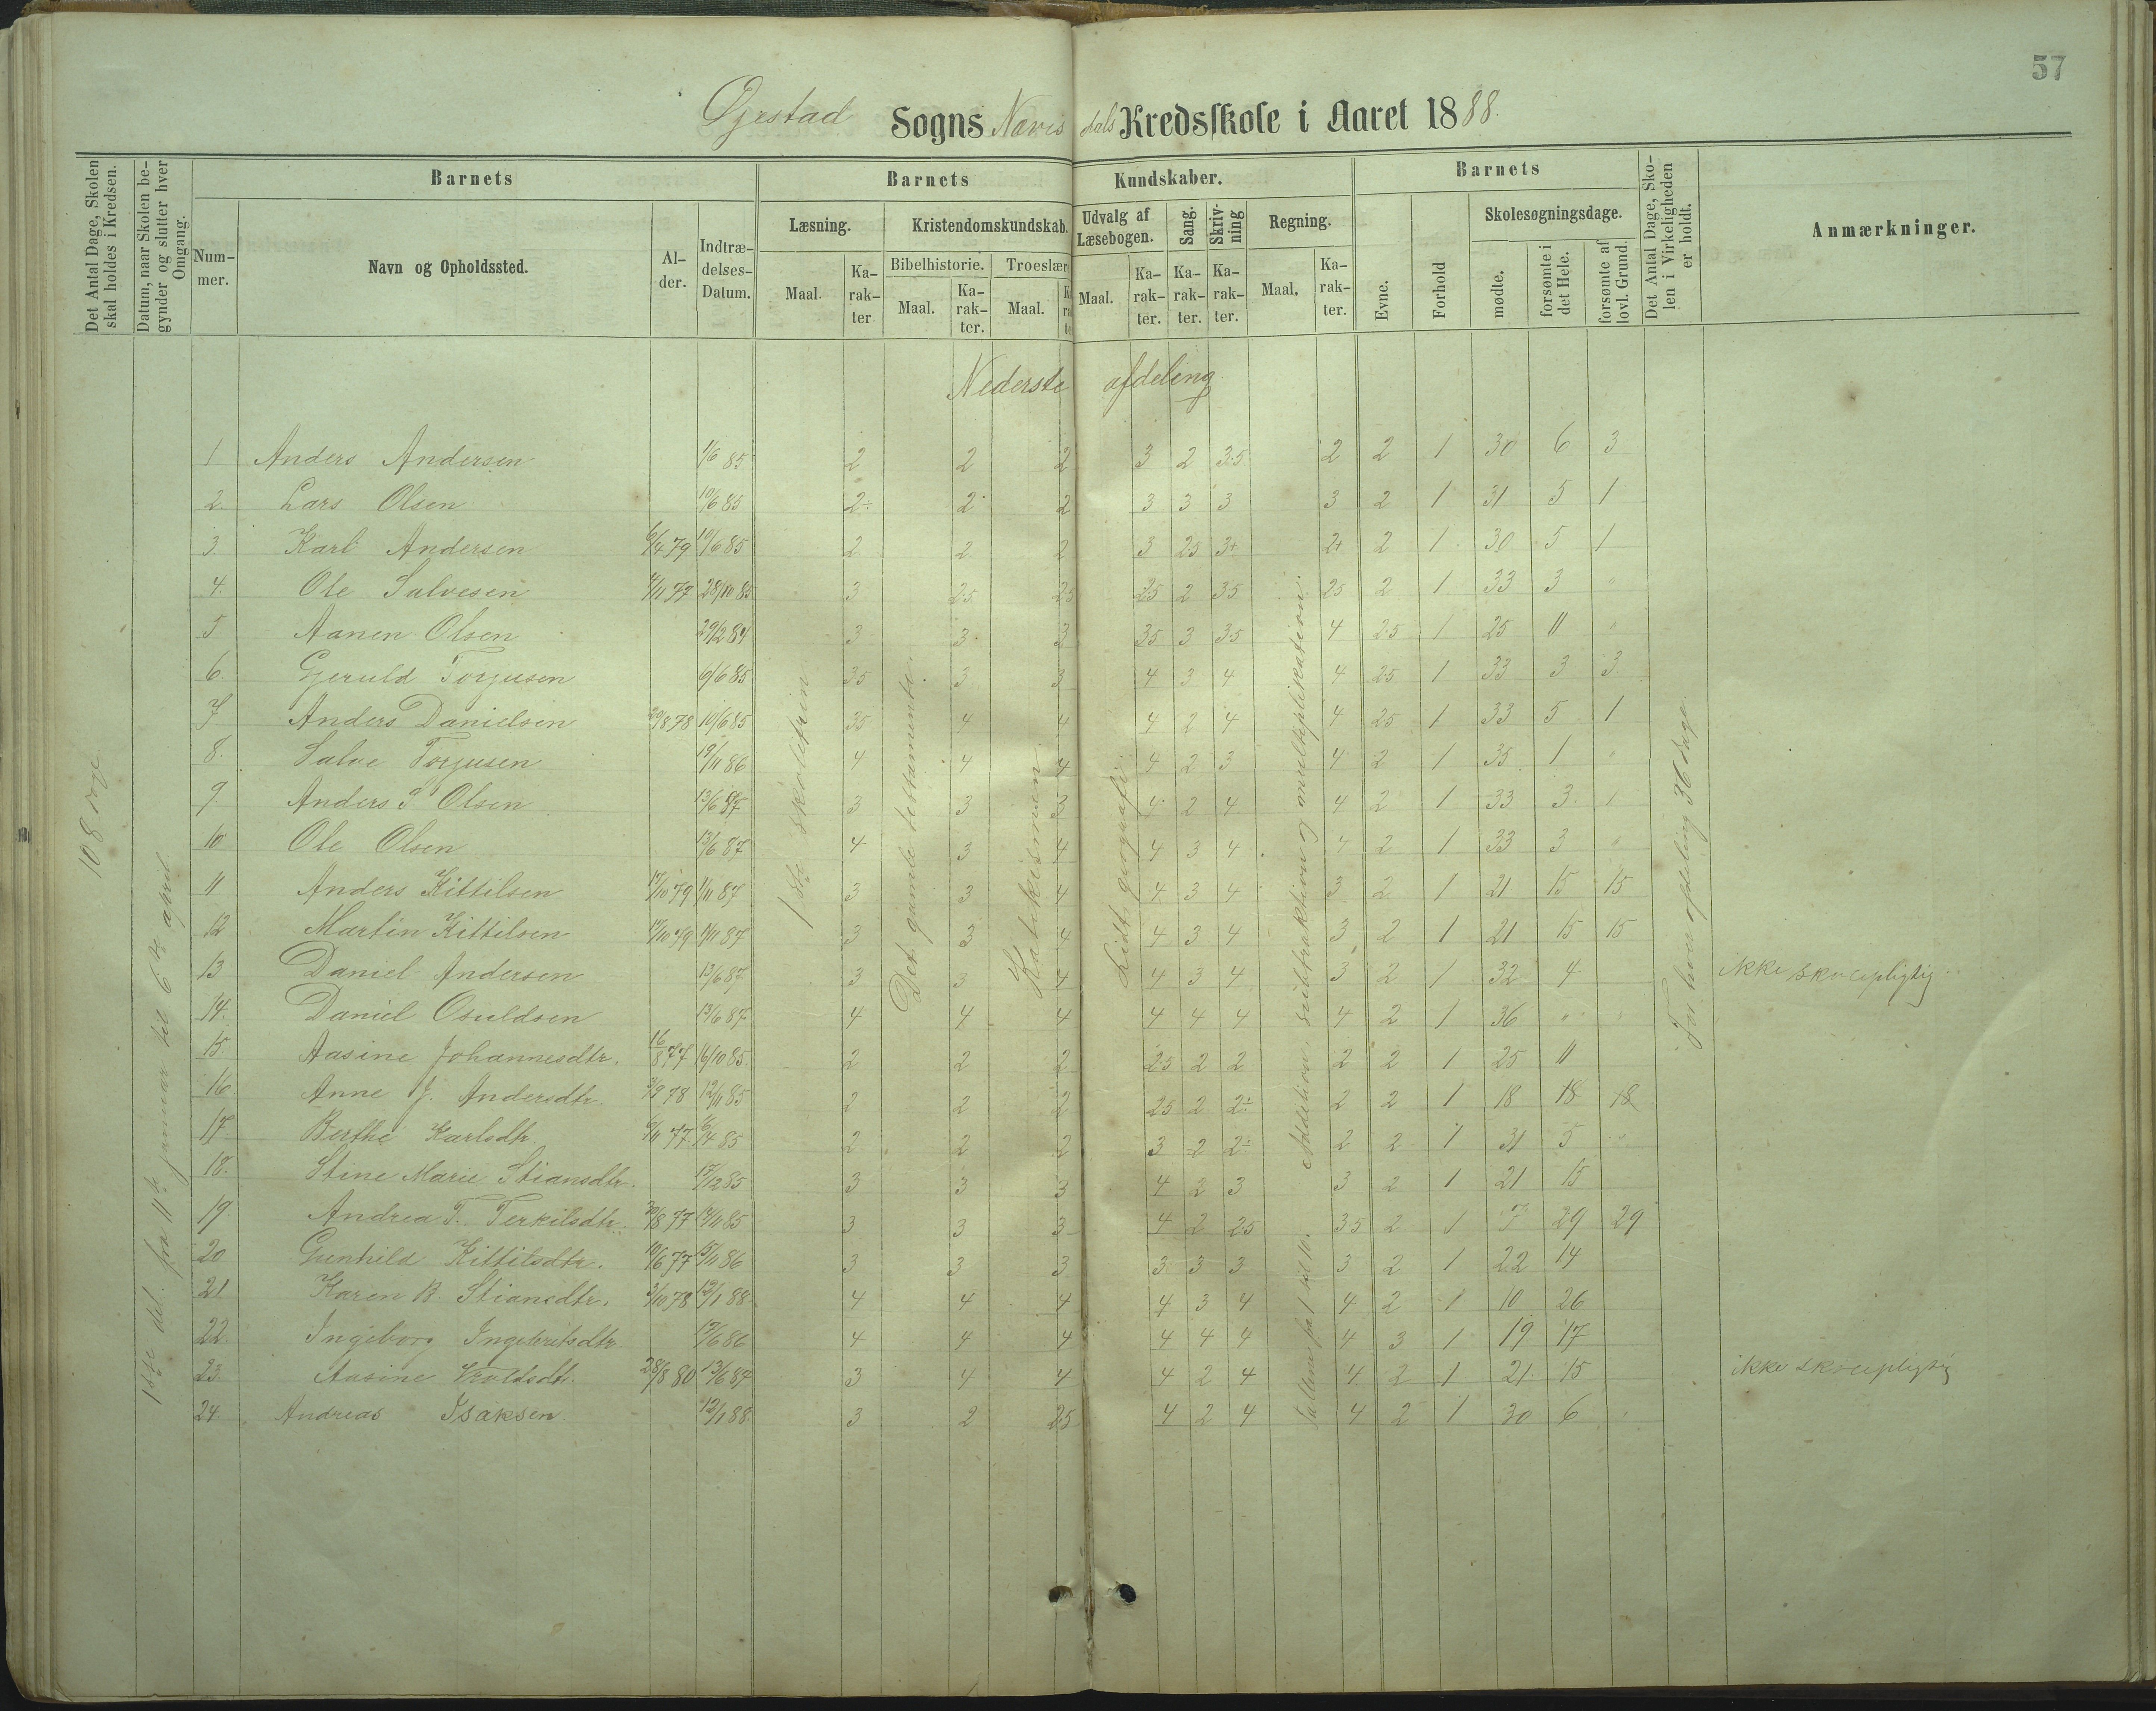 57
Øjestad Sogns Navis dals Kredsskole i Aaret 1888.
Det Antal Dage, Skolen skal holdes i Kredsen.
Datum, naar Skolen begynder og slutter hver Omgang.
Barnets
Barnets
Kundskaber.
Barnets
Det Antal Dage, Skolen i Virkeligheden er holdt.
Anmærkninger.
Nummer.
Navn og Opholdssted.
Alder.
Indtrædelses-Datum.
Læsning.
Kristendomskundskab.
Udvalg af Læsebogen.
Sang.
Skrivning
Regning.
Evne.
Forhold
Skolesøgningsdage.
Bibelhistorie.
Troeslær
Maal.
Karakter
Maal.
Karakter.
Maal.
Maal.
Karakter.
Karakter.
Karakter.
Maal.
Karakter.
mødte.
forsømte i det Hele.
forsømte af lovl. Grund.
Nederste afdeling
1 Anders Andersen 1/6 85 2 2 2 3 2 3.5 2 2 1 30 6 3
2. Lars Olsen 10/6 85 2÷ 2 2 3 3 3 3 2 1 31 5 1
3 Karl Andersen 6/4 79 10/6 85 2 2 2 3 25 3+ 2+ 2 1 30 5 1
4. Ole Salvesen 4/11 77 28/10 85 3 25 25 35 2 35 25 2 1 33 3 "
5 Aanen Olsen 29/2 84 3 3 3 35 3 35 4 25 1 25 11 "
6. Gjeruld Torjusen 6/6 85 35 3 3 4 3 4 4 25 1 33 3 3
7 Anders Danielsen 29/8 78 10/6 85 35 4 4 4 2 4 4 25 1 33 5 1
8. Salve Torjusen 19/11 86 4 4 4 4 2 3 4 2 1 35 1 "
9. Anders Olsen 13/6 87 3 3 3 4 2 4 4 2 1 33 3
10 Ole Olsen 13/6 87 4 3 4 4 3 4 4 2 1 33 3 "
11 Anders Kittilsen 17/10 79 1/11 87 3 3 4 4 3 4 3 2 1 21 15 15
12 Martin Kittilsen 17/10 79 1/11 87 3 3 4 4 3 4 3 2 1 21 15 15
13 Daniel Andersen 13/6 87 3 3 4 4 3 4 3 2 1 32 4 ikke skolepligtig
14. Daniel Osuldsen 13/6 87 4 4 4 4 4 4 4 2 1 36 "
15. Aasine Johannesdtr. 16/8 77 16/10 85 2 2 2 25 2 2 2 2 1 25 11
16 Anne J. Andersdtr 3/9 78 12/11 85 2 2 2 25 2 2÷ 2 2 1 18 18 18
17 Berthe Karlsdtr. 6/11 77 6/14 85 2 2 2 3 2 2÷ 2 2 1 31 5 "
18. Stine Marie Stiansdtr. 17/12 85 3 3 3 4 2 3 3 2 1 21 15
19 Andrea T. Terkilsdtr. 20/8 77 14/11 85 3 3 3 4 2 25 35 2 1 7 29 29
20 Gunhild Kittilsdtr. 10/6 77 15/11 86 3 3 3 3 3 3 3 2 1 22 14
21 Karen B. Stiansdtr. 3/10 78 12/1 88 4 4 4 4 3 4 4 2 1 10 26
22. Ingeborg Ingebritsdtr 17/6 86 4 4 4 4 4 4 4 3 1 19 17
23. Aasine 28/8 80 13/6 87 3 4 4 4 2 4 4 2 1 21 15 ikke skolepligtig
24. Andreas Isaksen 12/1 88 3 2 25 4 2 4 4 2 1 30 6
108 dage
1ste del. fra 11te januar til 6te april
1ste skoletrin
Det gamle testamente.
Katekismen
Lidt geografi
Addition, subtraktion og multiplikation. Tallene fra 1 til 10.
For hver afdeling 36 dage